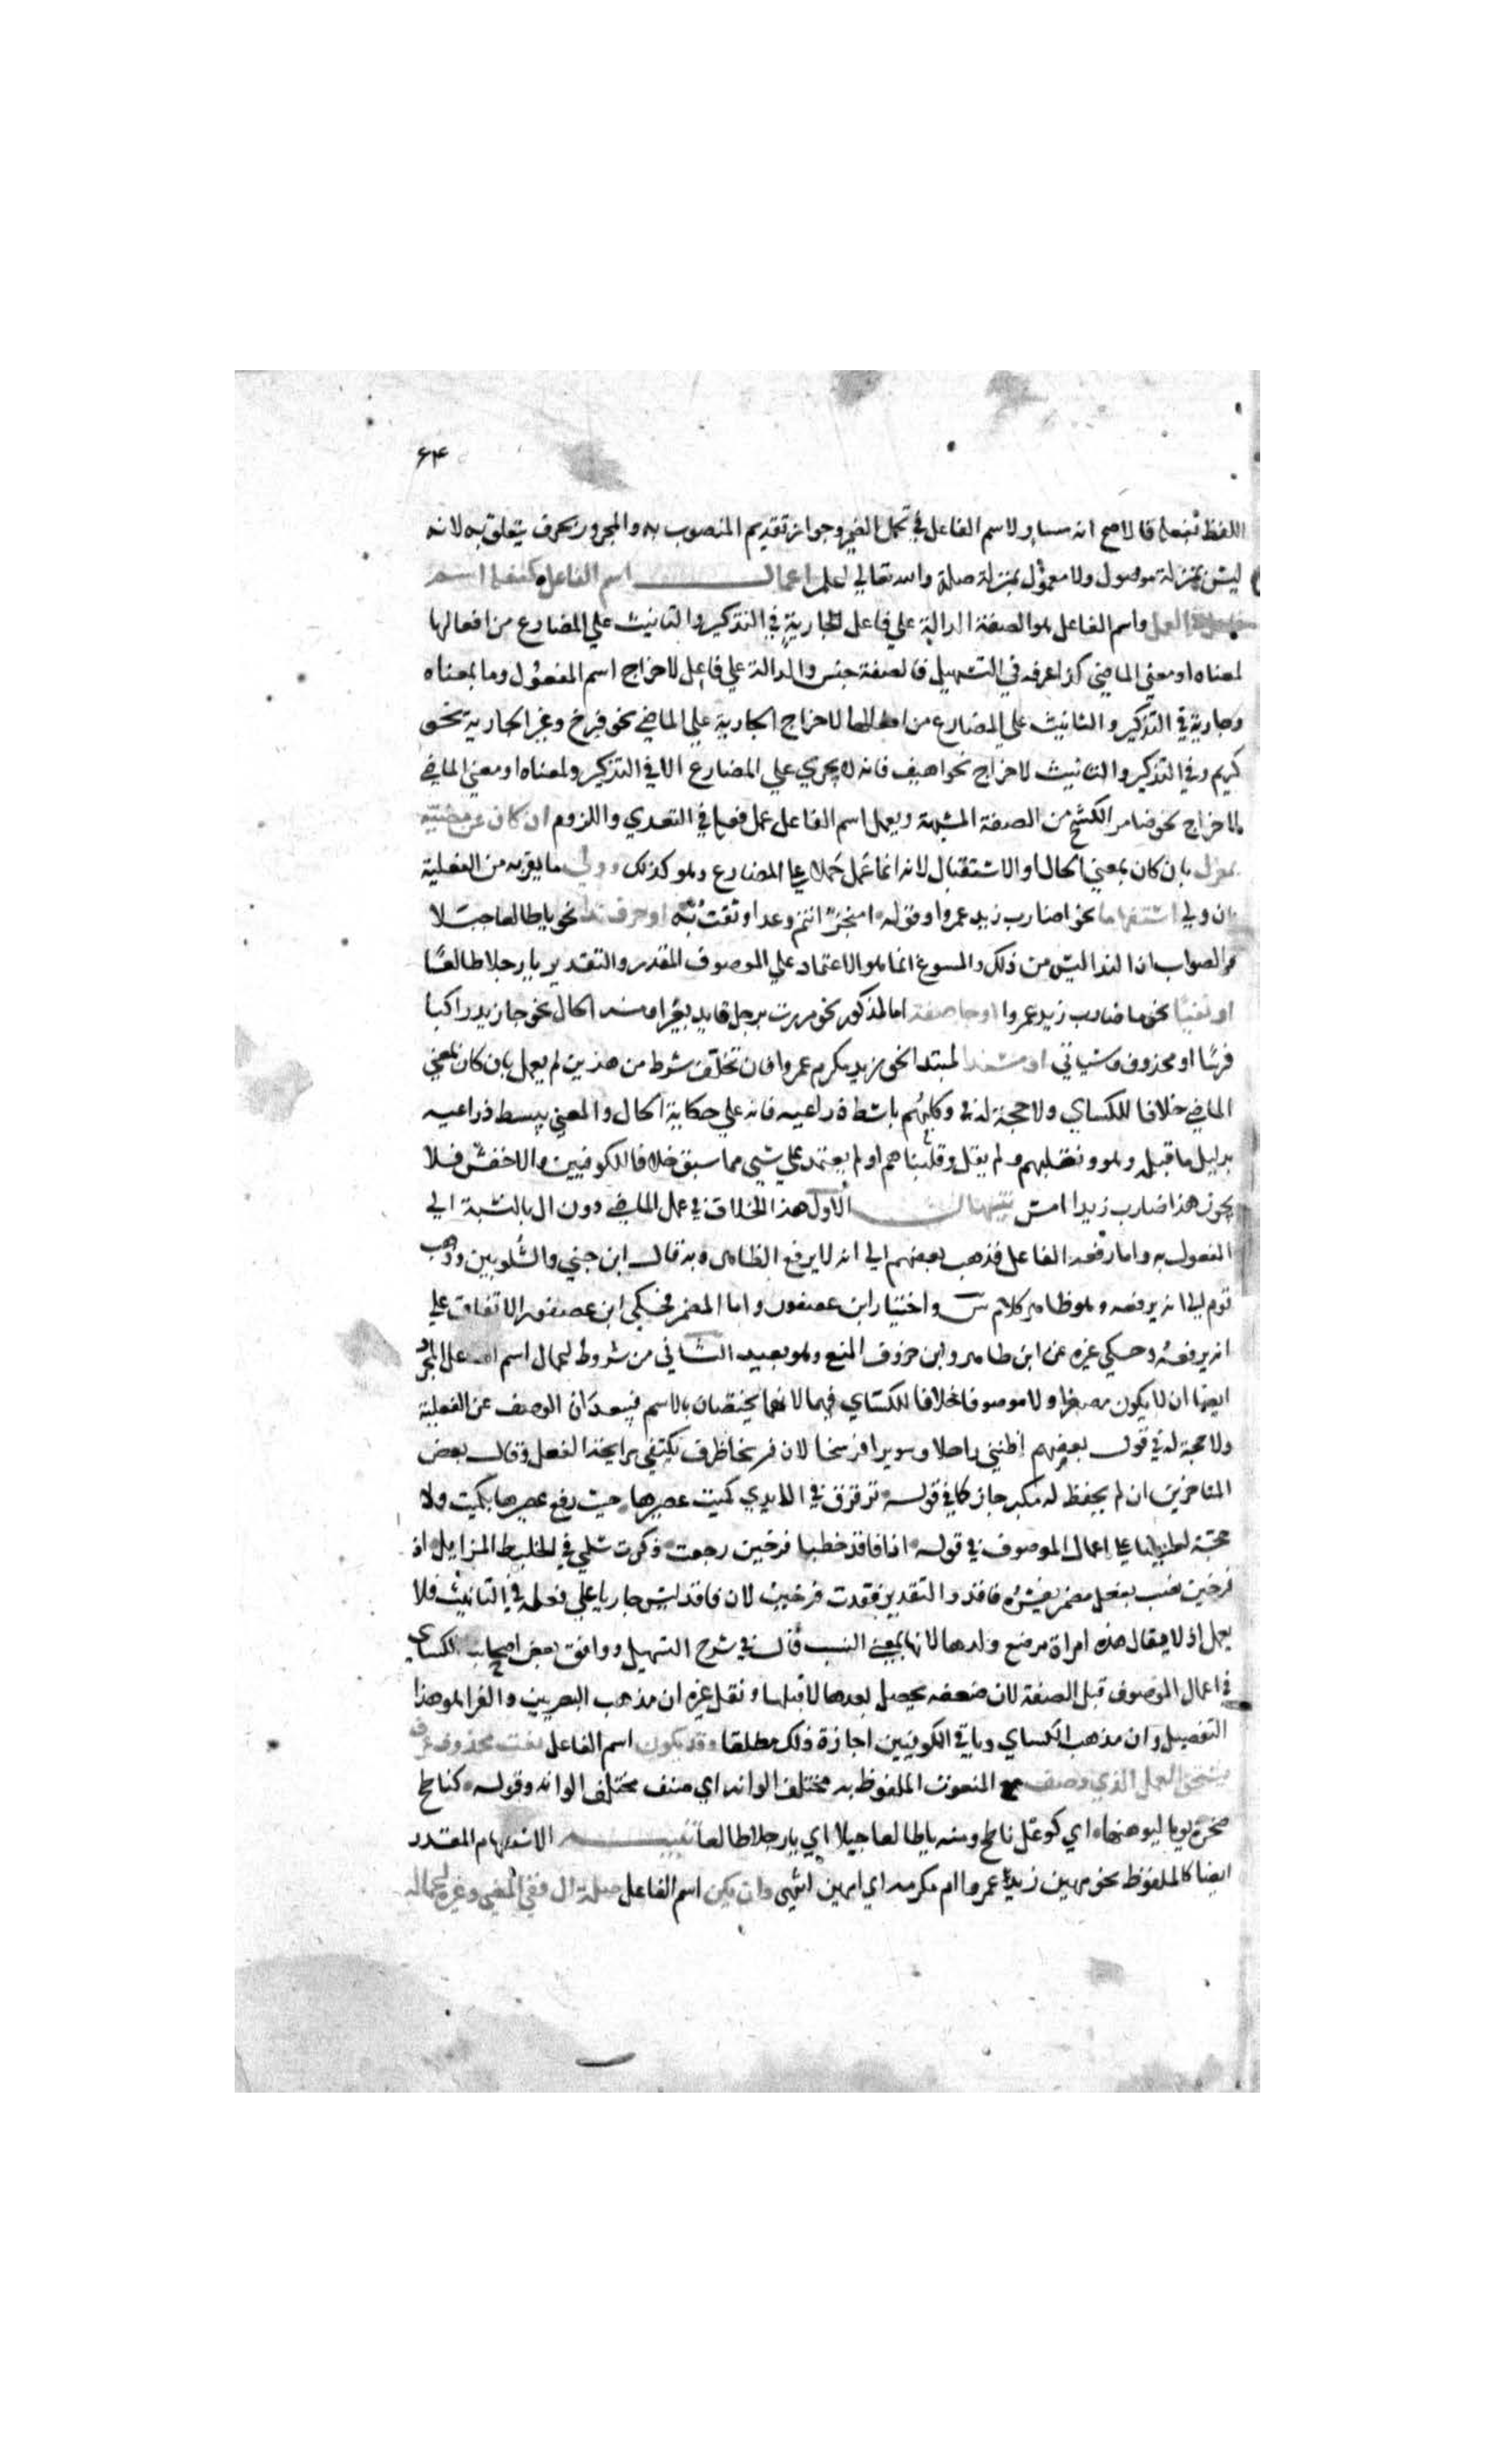 ٦٣
اللفظ بفعله فالاصح انه مساو لاسم الفاعل في تحمل الضمير وجواز تقديم المنصوب به والمجرور بحرف يتعلق به لانه
ليس بمنزلة موصول ولا معموله بمنزلة صلة والله تعالي اعلم اعمال اسم الفاعل كفعله اسم
العمل واسم الفاعل هو الصفة الدالة علي فاعل الجارية في التذكير والتانيث علي المضارع من افعالها
لمعناه او معني الماضي كذا عرفه في التسهيل فالصفة جنس والدالة علي فاعل لاخراج اسم المفعول وما بمعناه
وجارية في التذكير والتانيث علي المضارع من افعالها لاخراج الجارية علي الماضي نحو فرح وغير الجارية نحو
كريم وفي التذكير والتانيث لاخراج نحو اهيف فانه لا يجري علي المضارع الا في التذكير ولمعناه او معني الماضي
لاخراج نحو ضامر الكشح من الصفة المشبهة ويعمل اسم الفاعل عمل فعله في التعدي واللزوم ان كان عن مضيه
بمعزل بان كان بمعني الحال او الاستقبال لانه انما عمل حملا علي المضارع وهو كذلك وولي ما يقربه من الفعلية
بان ولي استفهاما نحو اضارب زيد عمروا وقوله امنجز انتم وعدا وثقت به او حرف ندا نحو ياطالعا جبلا
والصواب ان الندا ليس من ذلك والمسوغ انما هو الاعتماد علي الموصوف المقدر والتقدير يا رجلا طالعا
او نفيا نحو ما ضارب زيد عمروا او جا صفة اما لمذكور نحو مررت برجل قايد بعيرا ومنه الحال نحو جا زيد راكبا
فرسا او محذوف وسياتي او مسندا لمبتدا نحو زيد مكرم عمروا فان تخلف شرط من هذين لم يعمل بان كان بمعني
الماضي خلافا للكساي ولا حجة له في وكلبهم باسط ذراعيه فانه علي حكاية الحال والمعني يبسط ذراعيه
بدليل ما قبله وهو ونقلبهم ولم يقل وقلبناهم او لم يعتمد علي شيي مما سبق خلافا للكوفيين والاخفش فلا
يجوز هذا ضارب زيدا امس تنبيهات الاول هذا الخلاف في عمل الماضي دون ال بالنسبة الي
المفعول به واما رفعه الفاعل فذهب بعضهم الي انه لا يرفع الظاهر وبه قال ابن جني والشلوبين وذهب
قوم الي انه يرفعه وهو ظاهر كلام س واختيار ابن عصفور واما المضمر فحكي ابن عصفور الاتفاق علي
انه يرفعه وحكي غيره عن ابن طاهر وابن خروف المنع وهو بعيد الثاني من شروط اعمال اسم الفاعل المجرد
ايضا ان لا يكون مصغرا ولا موصوفا خلافا للكساي فيهما لانهما يختصان بالاسم فيبعدان الوصف عن الفعلية
ولا حجة له في قول بعضهم اظنني راحلا وسويرا فرسخا لان فرسخا ظرف يكتفي برايحة الفعل وقال بعض
المتاخرين ان لم يحفظ له مكبر جاز كما في قوله ترقرق في الايدي كميت عصيرها حيث رفع عصيرها بكميت ولا
حجة له علي اعمال الموصوف في قوله اذا فاقد خطبا فرخين رجعت ذكرت سلمي في الخليط المزايل اذ
فرخين نصب بفعل مضمر يفسره فاقد والتقدير فقدت فرخين لان فاقد ليس جاريا علي فعله في التانيث فلا
يعمل اذ لا يقال هذه امراة مرضع ولدها لانها بمعني النسب قال في شرح التسهيل ووافق بعض اصحابنا الكساي
في اعمال الموصوف قبل الصفة لان ضعفه يحصل بعدها لا قبلها ونقل غيره ان مذهب البصريين والفرا هو هذا
التفصيل وان مذهب الكساي وباقي الكوفيين اجازة ذلك مطلقا وقد يكون اسم الفاعل نعت محذوف عرف
فيستحق العمل الذي وصف مع المنعوت الملفوظ به مختلف الوانه اي صنف مختلف الوانه وقوله كناطح
صخرة يوما ليوهنها اي كوعل ناطح ومنه ياطالعا جبلا اي يا رجلا طالعا تنبيه الاستفهام المقدر
ايضا كالملفوظ نحو مهين زيد عمروا ام مكرمه اي امهين انتهي وان يكن اسم الفاعل صلة ال ففي المضي وغيره اعماله